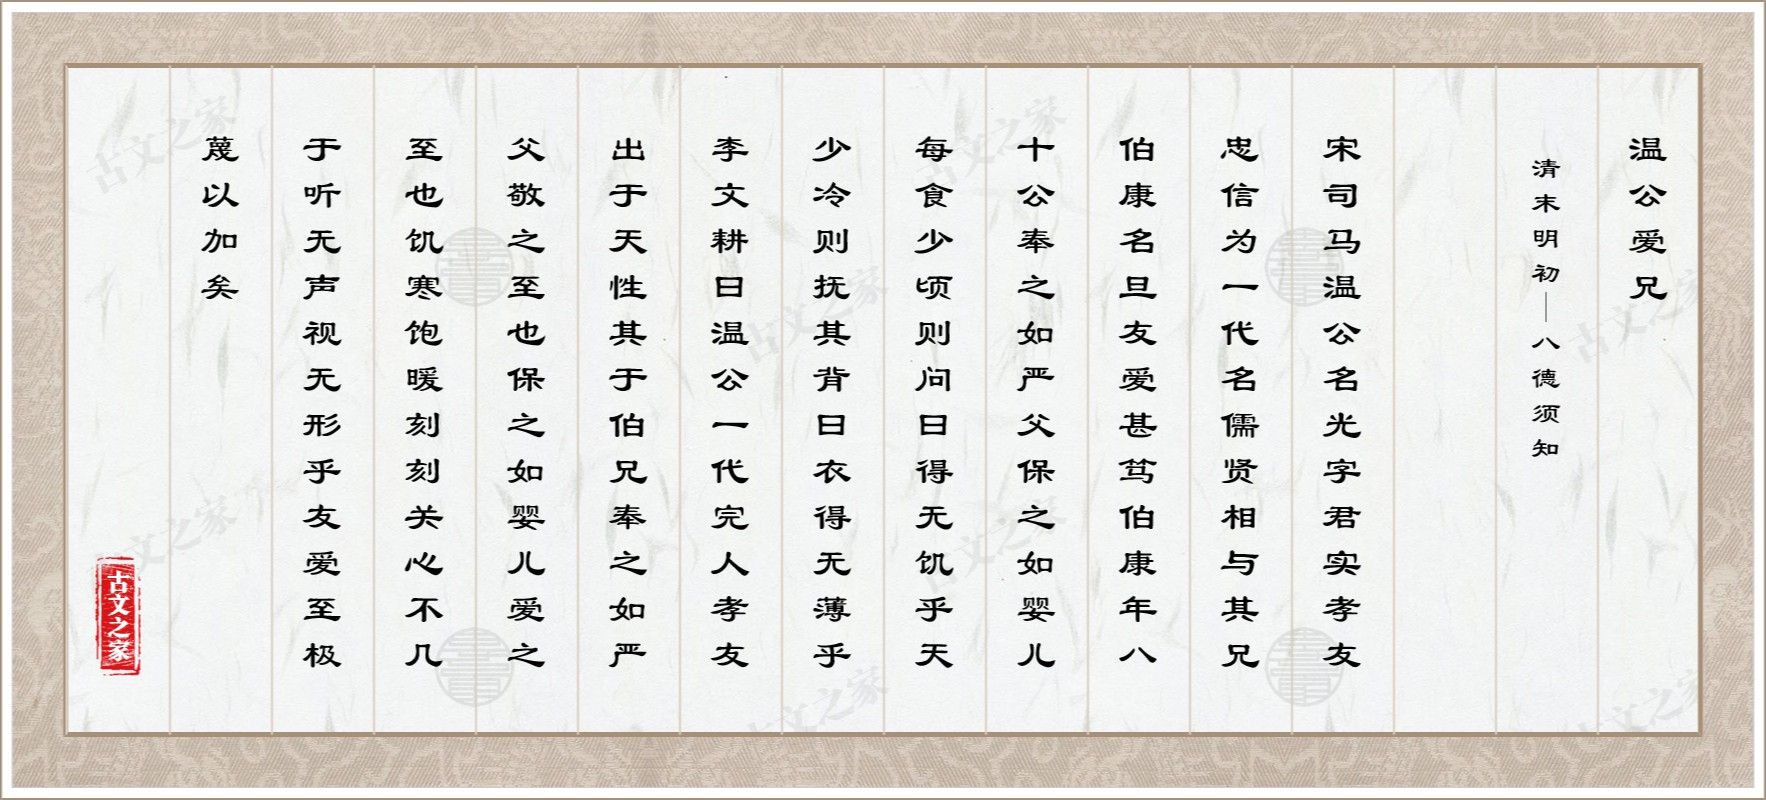 温公爱兄
清末明初—八德须知
宋司马温公名光字君实孝友
忠信为一代名儒贤相与其兄
伯康名旦友爱甚笃伯康年八
十公奉之如严父保之如婴儿
每食少顷则问曰得无饥乎天
少冷则抚其背曰衣得无薄乎
李文耕曰温公一代完人孝友
出于天性其于伯兄奉之如严
父敬之至也保之如婴儿爱之
至也饥寒饱暖刻刻关心不几
于听无声视无形乎友爱至极
蔑以加矣
古文之家